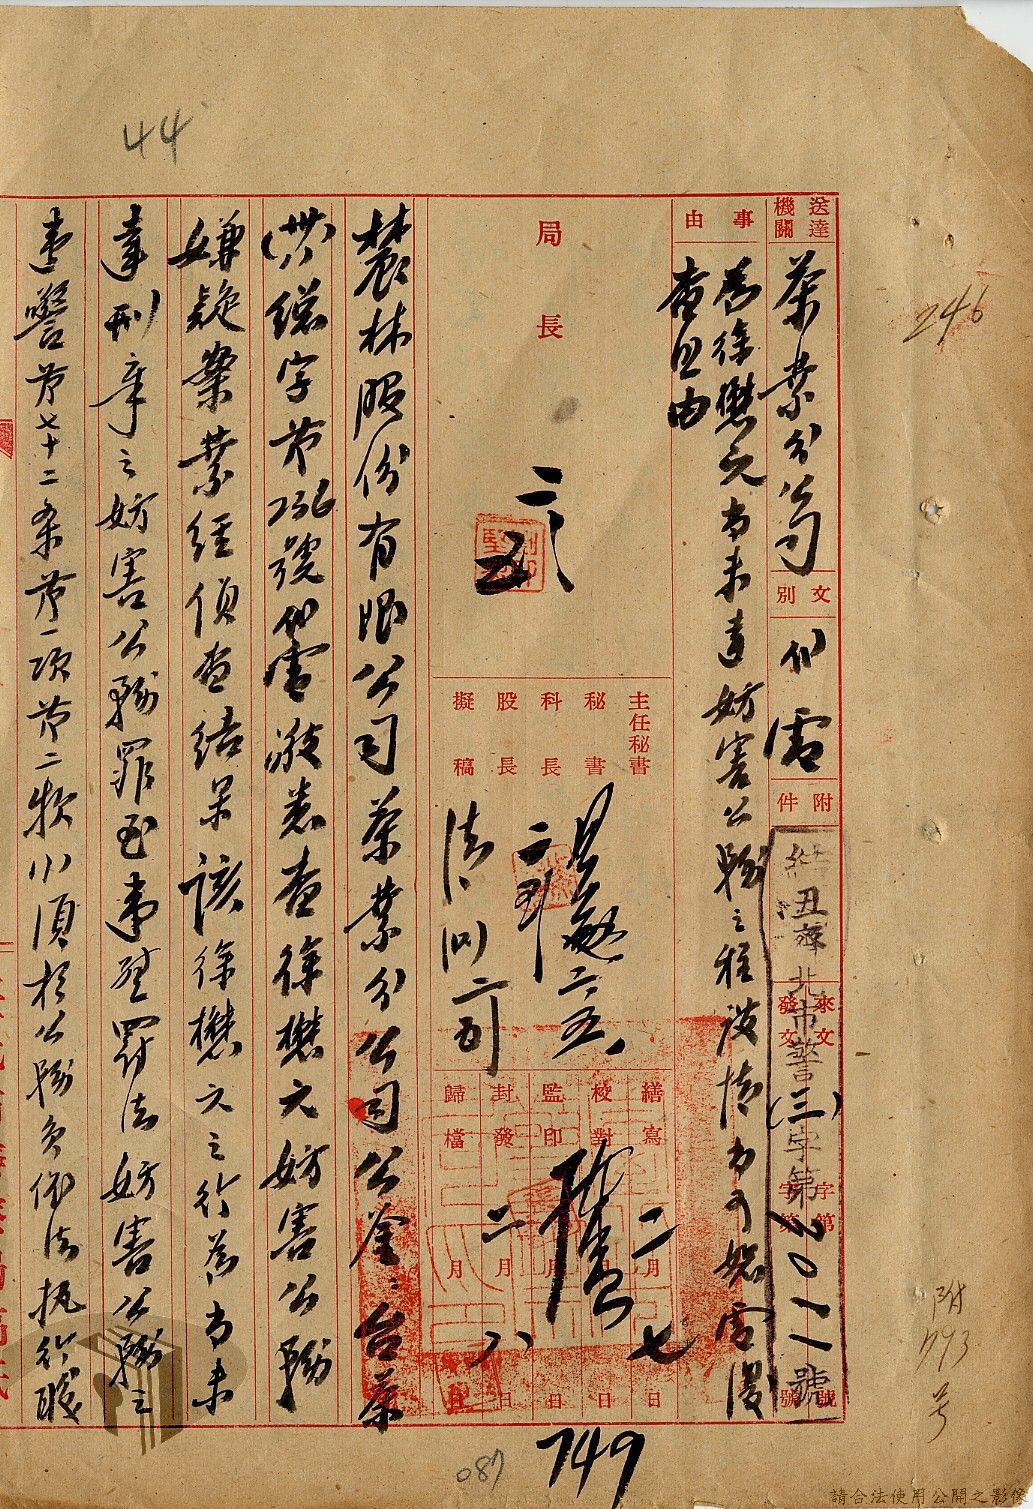 44
246
送達機關
茶業分公司
文別
代電
附件
來文 字第 號
發文 字第 號
丑齊北市警(三)字第 二〇一一 號
事由
為徐懋元尚未達妨害公務之程度情尚可恕電復
查照由
局長
主任秘書
秘書
科長
股長
擬稿
繕寫 二月七日
校對 月 日
監印 月 日
封發 二月八日
歸檔 月 日
農林股份有限公司茶業分公司公鑒:台茶
(卅八)總字第236號代電敬悉查徐懋元妨害公務
嫌疑案業經偵查結果該徐懋元之行為尚未
達刑章之妨害公務罪至違警罰法妨害公務之
違警第七十二條第一項第二款小須於公務員依法執行職
附
793
號
087
749
請合法使用公開之影像